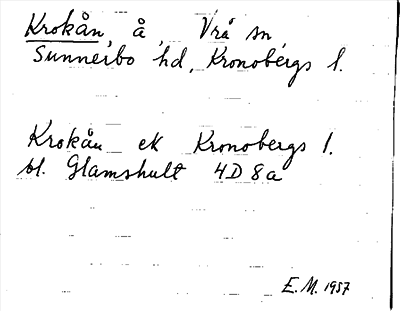 Krokån, å, Vrå sn,
Sunnerbo hd, Kronobergs l.
Krokån ek Kronobergs l.
bl. Glamshult 4D 8a
E.M. 1957